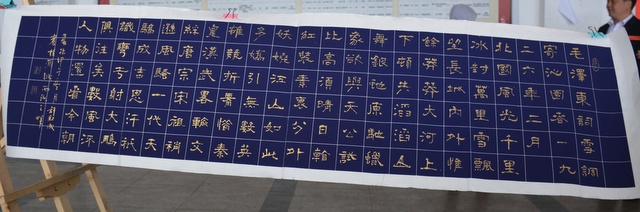 毛澤東詞雪調
寄沁園春一九
二六年二月
北國風光千里
冰封萬里雪飄
望長城內外惟
餘莽莽大河上
下頓失滔滔山
舞銀蛇原馳蠟
象欲與天公試
比高須晴日看
紅裝素裹分外
妖嬈江山如此
多嬌引無數英
雄競折腰惜秦
皇漢武略輸文
采唐宗宋祖稍
遜風騷一代天
驕成吉思汗祇
識彎弓射大鵰
俱往矣數風流
人物還看今朝